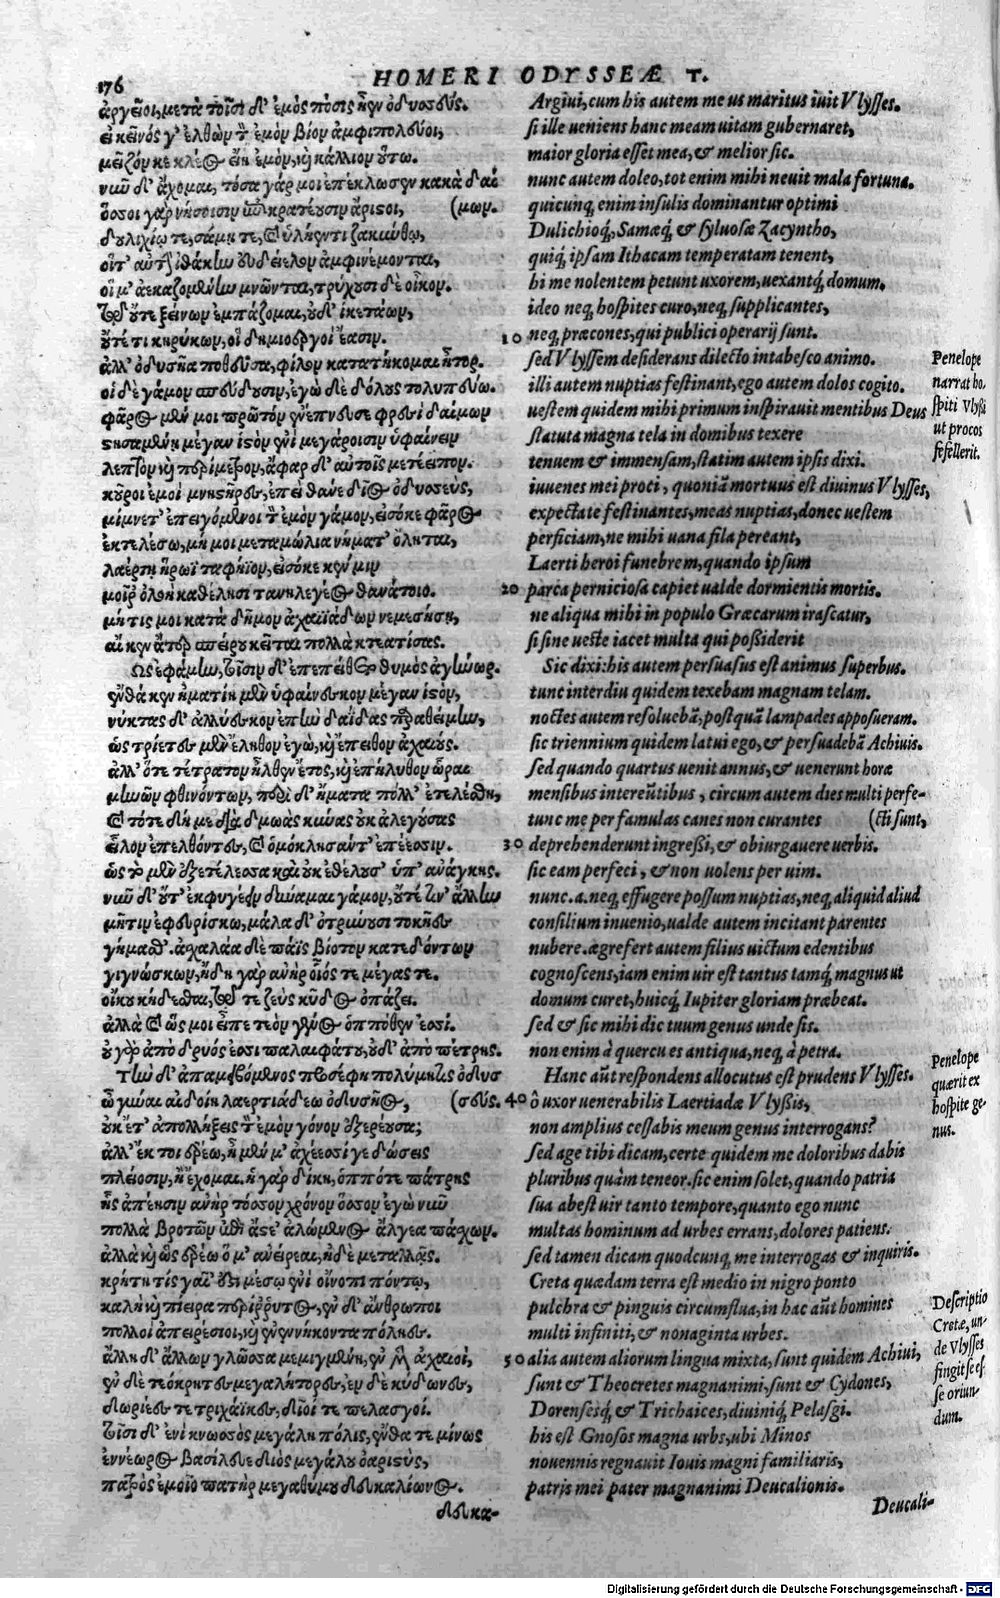 176
HOMERI ODYSSEÆ T.
ἀργεῖοι, μετὰ τοῖσι δ' ἐμὸς πόσις ἦεν ὀδυσσεύς.
εἰ κεῖνός γ' ἐλθὼν τ̀ ἐμὸν βίον ἀμφιπολεύοι,
μεῖζόν κε κλέος εἴη ἐμὸν, κỳ κάλλιον οὕτω.
νῦν δ' ἄχομαι, τόσα γάρ μοι ἐπέκλωσεν κακὰ δαί
ὅσσοι γὰρ νήσοισιν ἐπικρατέουσιν ἄριστοι, (μων.
δουλιχίῳ τε, σάμῃ τε, καὶ ὑλήεντι ζακύνθῳ,
οἵτ' αὐτὴν ἰθάκην εὐδείελον ἀμφινέμονται,
οἵ μ' ἀεκαζομένην μνῶνται, τρύχουσι δὲ οἶκον.
τῷ οὔτε ξείνων ἐμπάζομαι, οὐδ' ἱκετάων,
οὔτέ τι κηρύκων, οἳ δημιοεργοὶ ἔασιν.
ἀλλ' ὀδυσῆα ποθεῦσα, φίλον κατατήκομαι ἦτορ.
οἱ δὲ γάμον σπεύδουσιν, ἐγὼ δὲ δόλους τολυπεύω.
φᾶρος μέν μοι πρῶτον ἐνέπνευσε φρεσὶ δαίμων
στησαμένη μέγαν ἱστὸν, ἐνὶ μεγάροισιν ὑφαίνειν
λεπτὸν καὶ περίμετρον, ἄφαρ δ' αὐτοῖς μετέειπον.
κοῦροι ἐμοὶ μνηστῆρες, ἐπεὶ θάνε δῖος ὀδυσσεὺς,
μίμνετ' ἐπειγόμενοι τὸν ἐμὸν γάμον, εἰσόκε φᾶρος
ἐκτελέσω, μή μοι μεταμώλια νήματ' ὄληται,
λαέρτῃ ἥρωϊ ταφήϊον, εἰσόκε κεν μιν
μοῖρ' ὀλοὴ καθέλῃσι τανηλεγέος θανάτοιο.
μήτις μοι κατὰ δῆμον ἀχαιϊάδων νεμεσήσῃ,
αἴ κεν ἄτερ σπείρου κεῖται πολλὰ κτεατίσσας.
Ὣς ἐφάμην, τοῖσιν δ' ἐπεπείθετο θυμὸς ἀγήνωρ.
ἔνθά κεν ἠματίη μὲν ὑφαίνεσκον μέγαν ἱστὸν,
νύκτας δ' ἀλλύεσκον ἐπὴν δαΐδας παραθείμην,
ὣς τρίετες μὲν ἔληθον ἐγὼ, καὶ ἔπειθον ἀχαιούς.
ἀλλ' ὅτε τέτρατον ἦλθεν ἔτος, καὶ ἐπήλυθον ὧραι
μηνῶν φθινόντων, περὶ δ' ἤματα πόλλ' ἐτελέσθη,
καὶ τότε δή με διὰ δμωὰς κύνας οὐκ ἀλεγούσας
εἷλον ἐπελθόντες, καὶ ὁμόκλησάν τ' ἐπέεσσιν.
ὣς τὸ μὲν ἐξετέλεσσα καὶ οὐκ ἐθέλουσ' ὑπ' ἀνάγκης.
νῦν δ' οὔτ' ἐκφυγέειν δύναμαι γάμον, οὔτέ τιν' ἄλλην
μῆτιν ἐφευρίσκω, μάλα δ' ὀτρύνουσι τοκῆες
γήμασθ'. ἀσχαλάα δὲ πάϊς βίοτον κατεδόντων
γιγνώσκων, ἤδη γὰρ ἀνὴρ οἷός τε μέγας τε.
οἴκου κήδεσθαι, τῷ τε ζεὺς κῦδος ὀπάζει.
ἀλλὰ καὶ ὥς μοι εἶπε τεὸν γένος ὁππόθεν ἐσσί.
οὐ γὰρ ἀπὸ δρυός ἐσσι παλαιφάτου, οὐδ' ἀπὸ πέτρης.
Τὴν δ' ἀπαμειβόμενος προσέφη πολύμητις ὀδυσ
ὦ γύναι αἰδοίη λαερτιάδεω ὀδυσῆος, (σεύς.
οὐκέτ' ἀπολλήξεις τὸν ἐμὸν γόνον ἐξερέουσα;
ἀλλ' ἔκ τοι ἐρέω, ἦ μέν μ' ἀχέεσσί γε δώσεις
πλείοσιν, ἢ ἔχομαι, ἡ γὰρ δίκη, ὁππότε πάτρης
ἧς ἀπέῃσιν ἀνὴρ τόσσον χρόνον ὅσσον ἐγὼ νῦν
πολλὰ βροτῶν ἐπὶ ἄστε' ἀλώμενος ἄλγεα πάσχων.
ἀλλὰ καὶ ὣς ἐρέω ὅ μ' ἀνείρεαι, ἠδὲ μεταλλᾷς.
κρήτη τὶς γαῖ' ἐστὶ μέσῳ ἐνὶ οἴνοπι πόντῳ,
καλὴ καὶ πίειρα περίῤῥυτος, ἐν δ' ἄνθρωποι
πολλοὶ ἀπειρέσιοι, καὶ ἐννήκοντα πόληες.
ἄλλη δ' ἄλλων γλῶσσα μεμιγμένη, ἐν μὲν ἀχαιοὶ,
ἐν δὲ τεόκρητες μεγαλήτορες, ἐν δὲ κύδωνες,
δωριέες τε τριχάϊκες, δῖοί τε πελασγοί.
τοῖσι δ' ἐνὶ κνωσσὸς μεγάλη πόλις, ἔνθα τε μίνως
ἐννέωρος βασίλευε διὸς μεγάλου ὀαριστὺς,
πατρὸς ἐμοῖο πατὴρ μεγαθύμου δευκαλίωνος.
δευκα-
Argiui, cum his autem meus maritus iuit Vlysses.
si ille ueniens hanc meam uitam gubernaret,
maior gloria esset mea, & melior sic.
nunc autem doleo, tot enim mihi neuit mala fortuna.
quicunq; enim insulis dominantur optimi
Dulichioq;, Samæq;, & syluosæ Zacyntho,
quiq; ipsam Ithacam temperatam tenent,
hi me nolentem petunt uxorem, uexantq; domum.
ideo neq; hospites curo, neq; supplicantes,
10 neq; præcones, qui publici operarij sunt.
sed Vlyssem desiderans dilecto intabesco animo.
illi autem nuptias festinant, ego autem dolos cogito.
uestem quidem mihi primum inspirauit mentibus Deus
statuta magna tela in domibus texere
tenuem & immensam, statim autem ipsis dixi.
iuuenes mei proci, quoniã mortuus est diuinus Vlysses,
expectate festinantes, meas nuptias, donec uestem
perficiam, ne mihi uana fila pereant,
Laerti heroi funebrem, quando ipsum
20 parca perniciosa capiet ualde dormientis mortis.
ne aliqua mihi in populo Græcarum irascatur,
si sine ueste iacet multa qui possiderit
Sic dixi: his autem persuasus est animus superbus.
tunc interdiu quidem texebam magnam telam.
noctes autem resoluebã, postquã lampades apposueram.
sic triennium quidem latui ego, & persuadebã Achiuis.
sed quando quartus uenit annus, & uenerunt horæ
mensibus intereũtibus, circum autem dies multi perfe-
tunc me per famulas canes non curantes (cti sunt,
30 deprehenderunt ingressi, & obiurgauere uerbis.
sic eam perfeci, & non uolens per uim.
nunc.a. neq; effugere possum nuptias, neq; aliquid aliud
consilium inuenio, ualde autem incitant parentes
nubere. ægrefert autem filius uictum edentibus
cognoscens, iam enim uir est tantus tamq; magnus ut
domum curet, huicq; Iupiter gloriam præbeat.
sed & sic mihi dic tuum genus unde sis.
non enim à quercu es antiqua, neq; à petra.
Hanc aũt respondens allocutus est prudens Vlysses.
40 ô uxor uenerabilis Laertiadæ Vlyssis,
non amplius cessabis meum genus interrogans?
sed age tibi dicam, certe quidem me doloribus dabis
pluribus quàm teneor. sic enim solet, quando patria
sua abest uir tanto tempore, quanto ego nunc
multas hominum ad urbes errans, dolores patiens.
sed tamen dicam quodcunq; me interrogas & inquiris.
Creta quædam terra est medio in nigro ponto
pulchra & pinguis circumflua, in hac aũt homines
multi infiniti, & nonaginta urbes.
50 alia autem aliorum lingua mixta, sunt quidem Achiui,
sunt & Theocretes magnanimi, sunt & Cydones,
Dorensesq; & Trichaices, diuiniq; Pelasgi.
his est Gnosos magna urbs, ubi Minos
nouennis regnauit Iouis magni familiaris,
patris mei pater magnanimi Deucalionis.
Deucali-
Penelope
narrat ho,
spiti Vlyssi
ut procos
fefellerit.
Penelope
quærit ex
hospite ge-
nus.
Descriptio
Cretæ, un-
de Vlysses
fingit se es
se oriun-
dum.
Digitalisierung gefördert durch die Deutsche Forschungsgemeinschaft - DFG